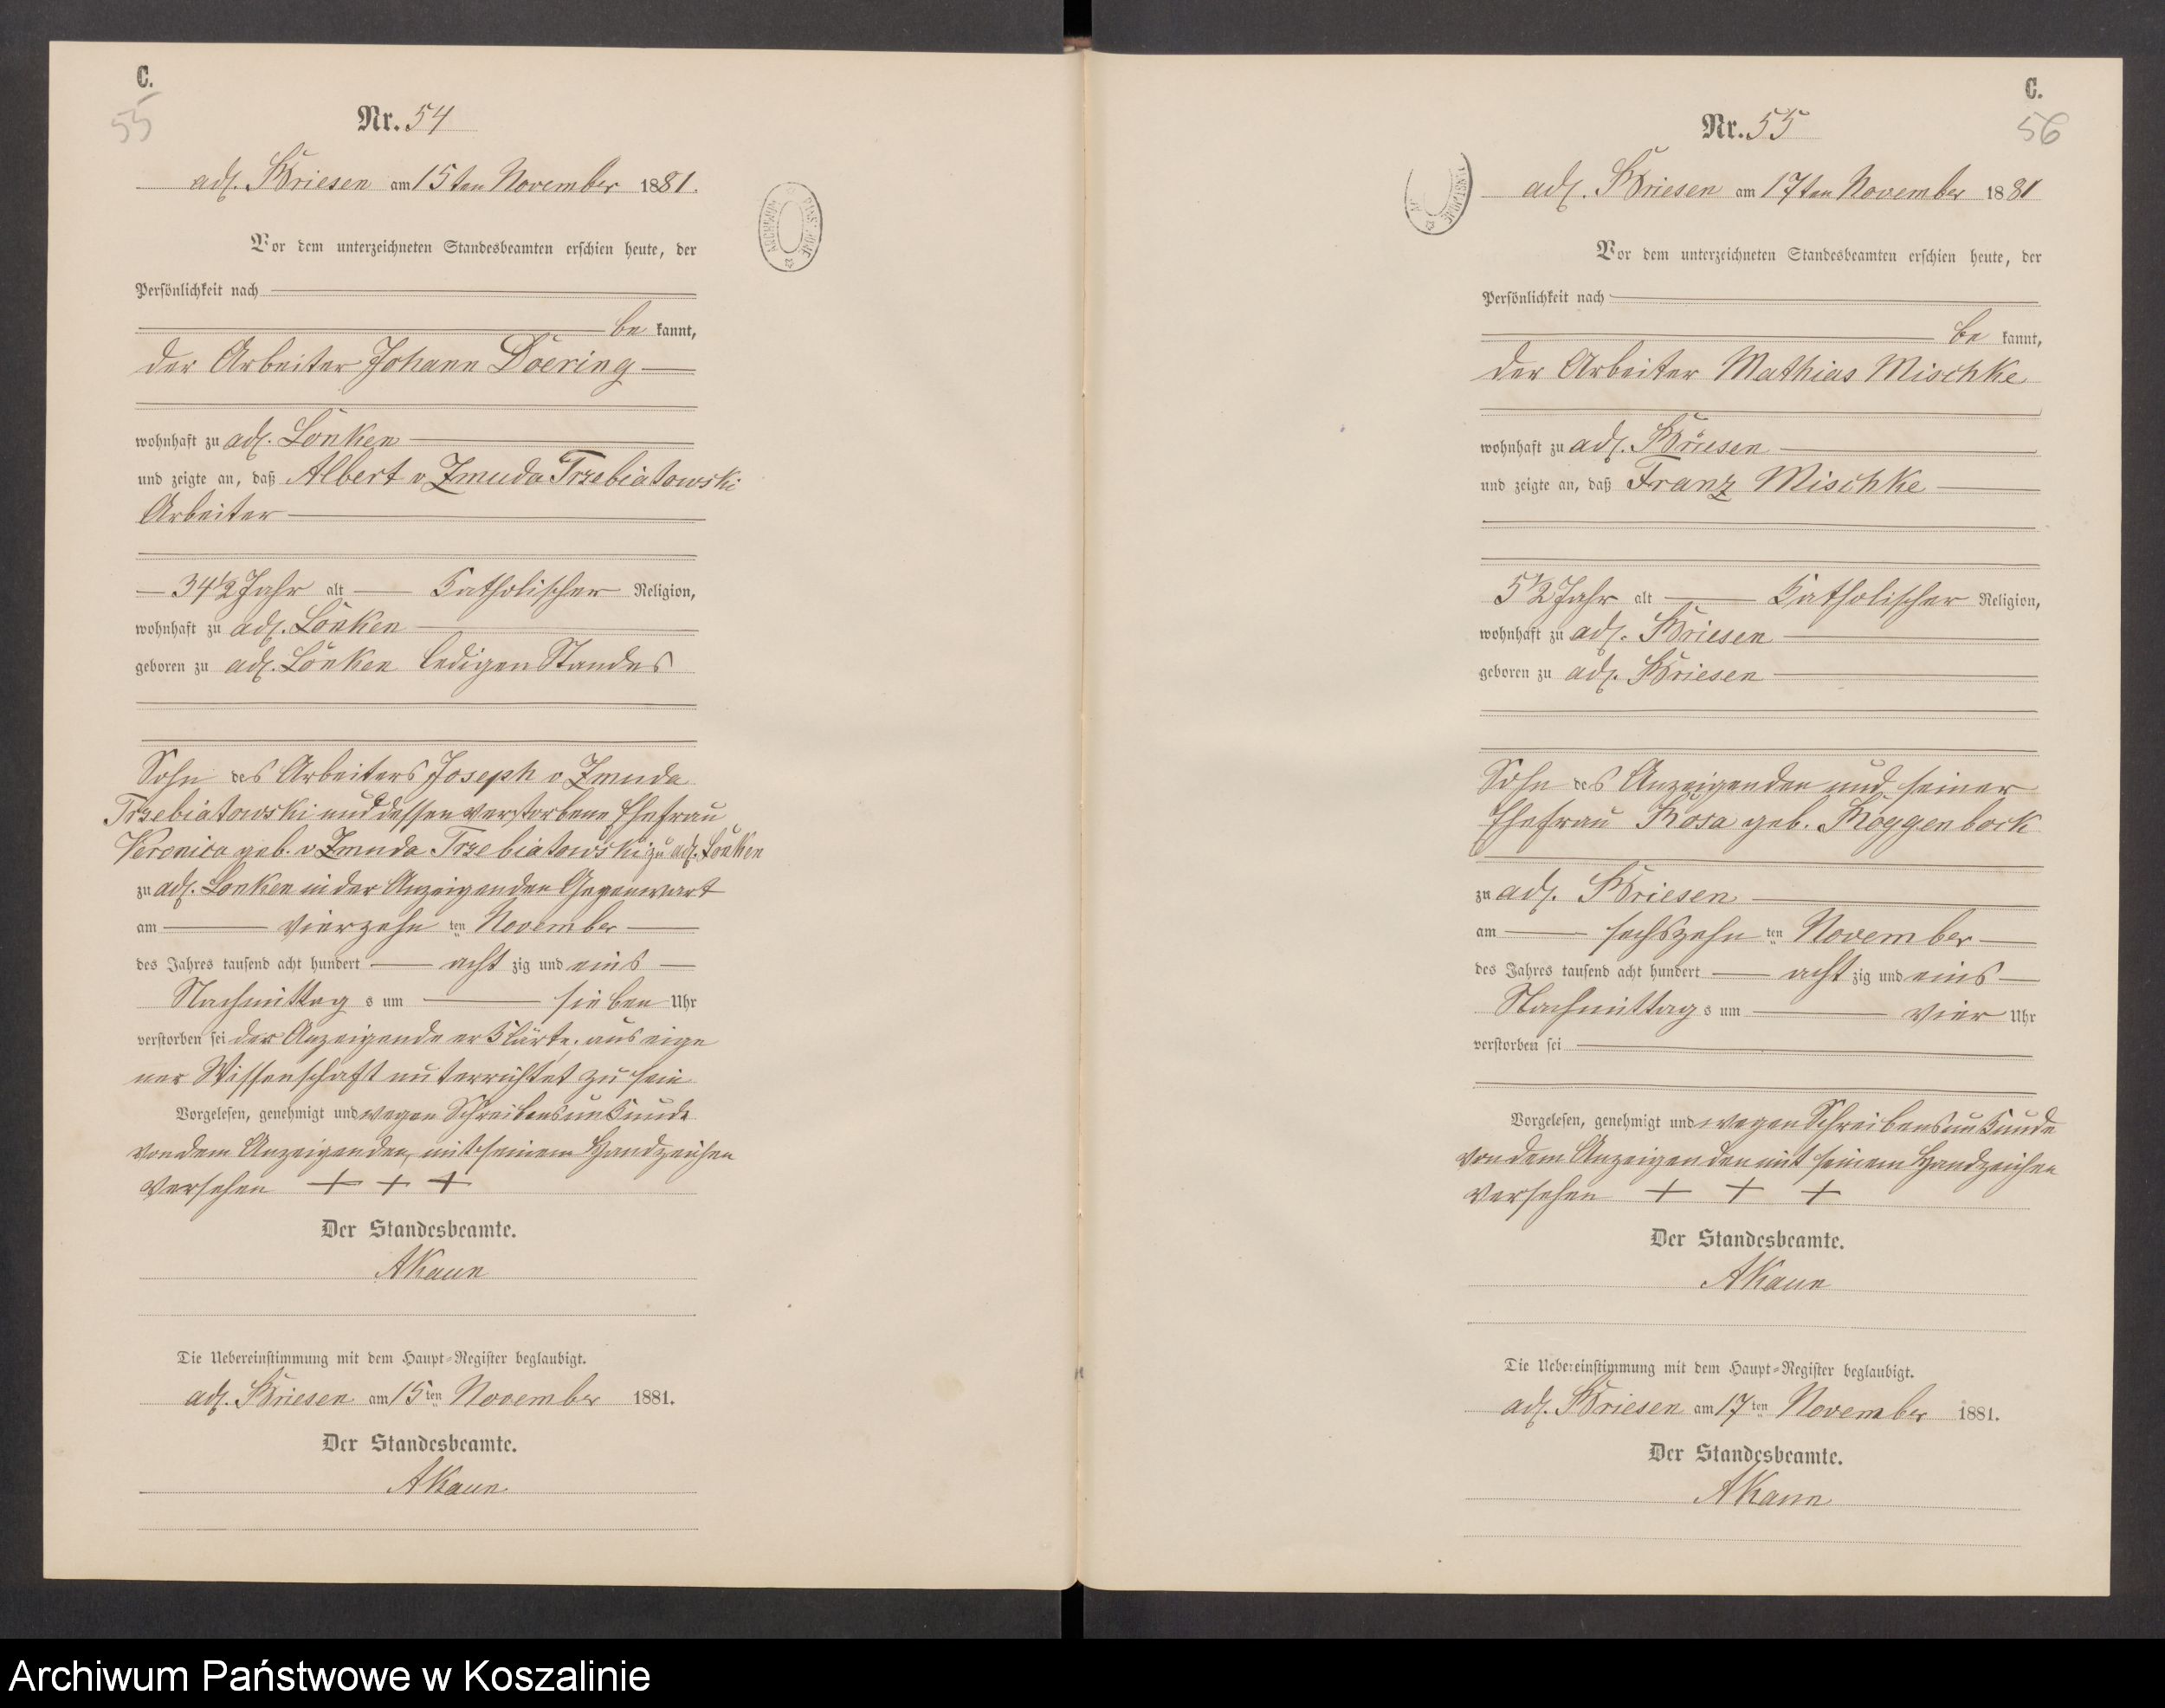 C.
55
Nr. 54
adl. Briesen am 15ten November 1881.
Vor dem unterzeichneten Standesbeamten erschien heute, der
Persönlichkeit nach
be kannt,
der Arbeiter Johann Doering
wohnhaft zu adl. Lonken
und zeigte an, daß Albert v Zmuda Trzebiatowski
Arbeiter
34 1/2 Jahr alt Katholischer Religion,
wohnhaft zu adl. Lonken
geboren zu adl. Lonken ledigen Standes
Sohn des Arbeiters Joseph v Zmuda
Trzebiatowski und dessen verstorbene Ehefrau
Veronica geb. v Zmuda Trzebiatowski zu adl. Lonken
zu adl. Lonken in der Anzeigenden Gegenwart
am vierzehn ten November
des Jahres tausend acht hundert acht zig und eins
Nachmittag s um sieben Uhr
verstorben sei der Anzeigende erklärte, aus eige
ner Wissenschaft unterrichtet zu sein
Vorgelesen, genehmigt und wegen Schreibensunkunde
von dem Anzeigenden mit seinem Handzeichen
versehen + + +
Der Standesbeamte.
AKaun
Die Uebereinstimmung mit dem Haupt-Register beglaubigt.
adl. Briesen am 15ten November 1881.
Der Standesbeamte.
AKaun
ARCHIWUM PAŃSTWOWE
C.
56
Nr. 55
adl. Briesen am 17ten November 1881
Vor dem unterzeichneten Standesbeamten erschien heute, der
Persönlichkeit nach
be kannt,
der Arbeiter Mathias Mischke
wohnhaft zu adl. Briesen
und zeigte an, daß Franz Mischke
5 1/2 Jahr alt Katholischer Religion,
wohnhaft zu adl. Briesen
geboren zu adl. Briesen
Sohn des Anzeigenden und seiner
Ehefrau Rosa geb. Roggenbock
zu adl. Briesen
am sechszehn ten November
des Jahres tausend acht hundert acht zig und eins
Nachmittag s um vier Uhr
verstorben sei
Vorgelesen, genehmigt und wegen Schreibensunkunde
von dem Anzeigenden mit seinem Handzeichen
versehen + + +
Der Standesbeamte.
AKaun
Die Uebereinstimmung mit dem Haupt-Register beglaubigt.
adl. Briesen am 17ten November 1881.
Der Standesbeamte.
AKaun
Archiwum Państwowe w Koszalinie